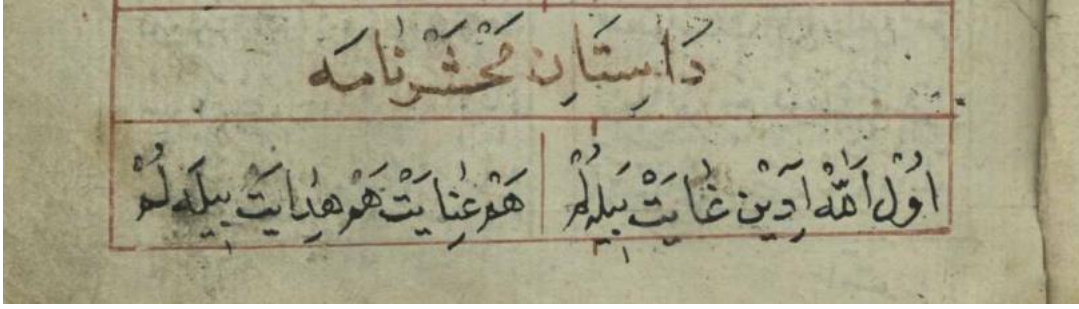 دَاسِتَانِ مَحْشَرْنَامَه
اَوَّل اَللّٰه آدِيْن غَايَتْ بِيلَه لُمْ هَمْ عِنَايَتْ هَمْ هِدَايَتْ بِيلَه لُمْ